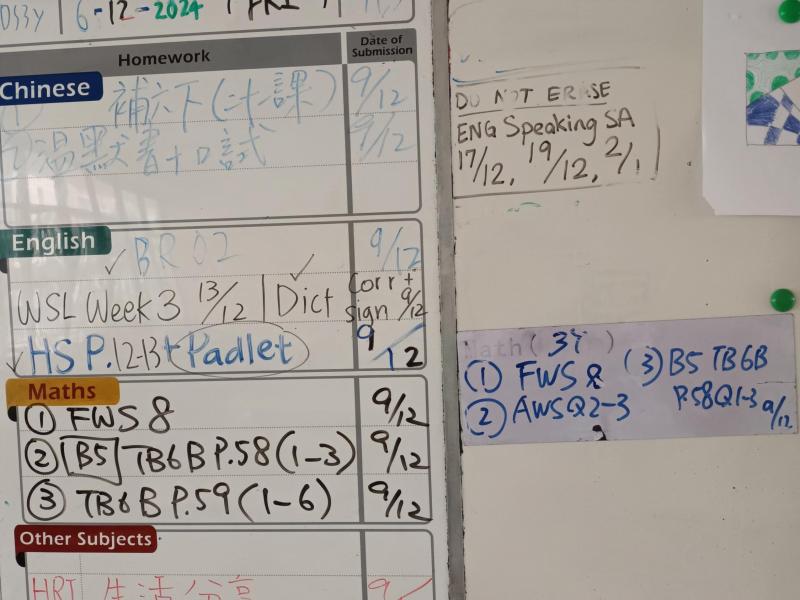 6-12-2024
Homework
Date of Submission
Chinese
① 補六下(二十課) 9/12
② 溫默書十口試 9/12
English
✓ BR02 9/12
WSL Week 3 13/12 | Dict ✓ Corr + sign 9/12
✓ HS P.12-13 + Padlet 9/12
Maths
① FWS 8 9/12
② B5 TB6B P.58 (1-3) 9/12
③ TB6B P.59 (1-6) 9/12
Other Subjects
HRT 生活分享 9/
DO NOT ERASE
ENG Speaking SA
17/12, 19/12, 2/1
Math(
① FWS 8
② AWS Q2-3
③ B5 TB6B
P.58 Q1-3 9/12